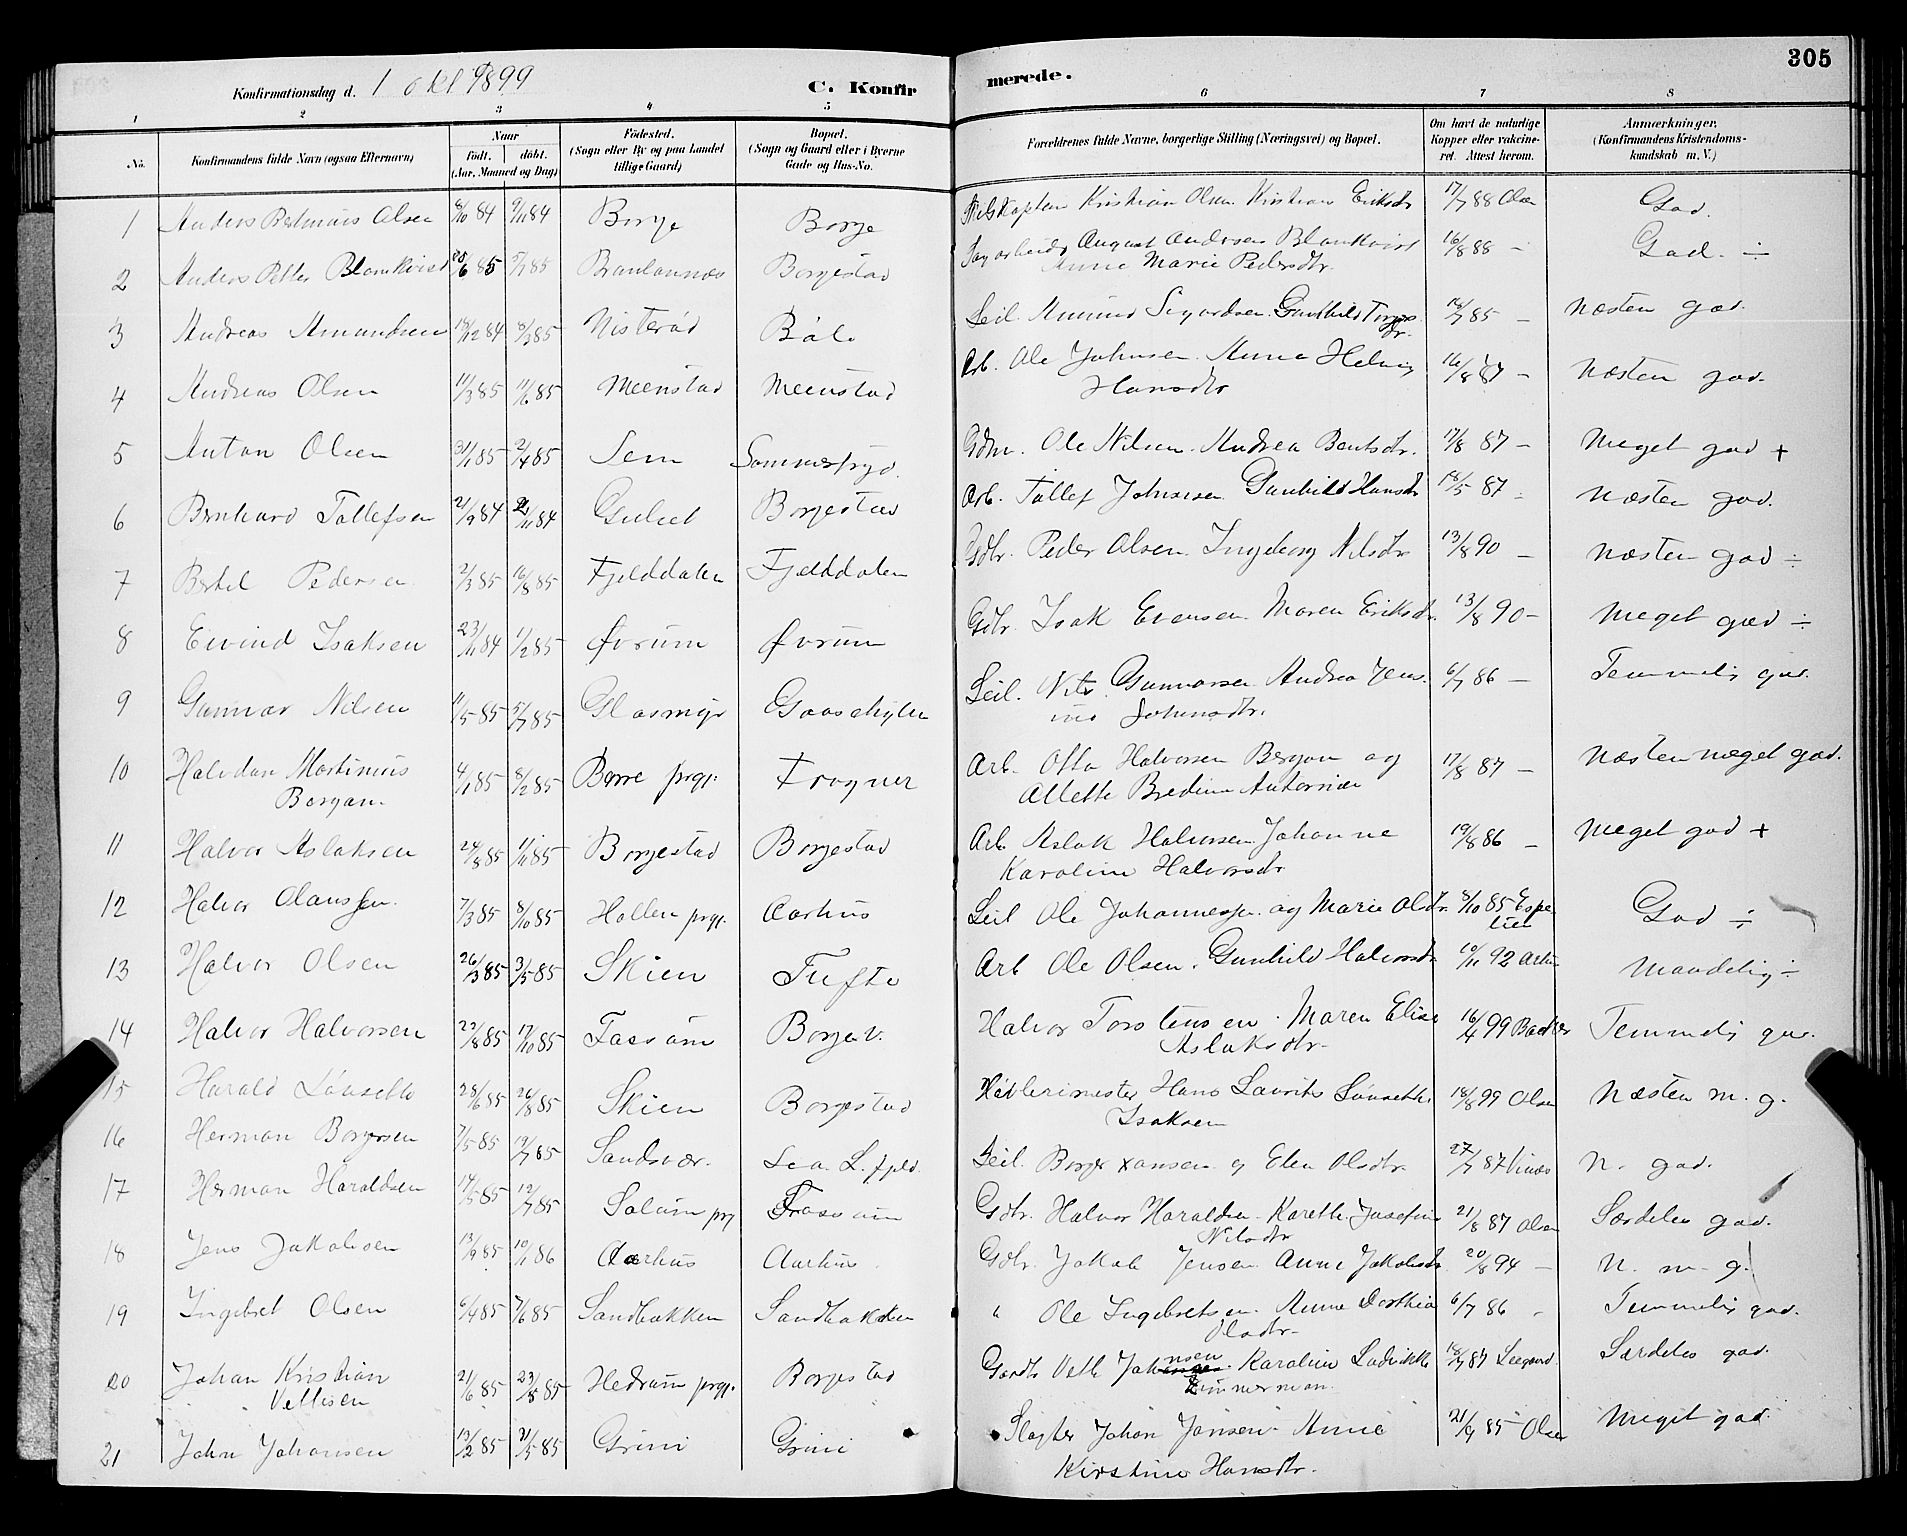 305
Konfirmationsdag d. 1 okt 1899 C. Konfirmerede.
1 2 3 4 5 6 7 8
No. Konfirmandens fulde Navn (ogsaa Efternavn) Naar født. døbt. (Aar, Maaned og Dag) Fødested. (Sogn eller By og paa Landet tillige Gaard) Bopæl. (Sogn og Gaard eller i Byerne Gade og Hus-No. Forældrenes fulde Navne, borgerlige Stilling (Næringsvei) og Bopæl. Om havt de naturlige Kopper eller vakcineret. Attest herom. Anmærkninger. (Konfirmandens Kristendomskundskab m. V.)
1 Anders Olsen 8/10 84 9/11 84 Borge Borge Kristian Olsen Eriksdr 17/7 88 Olsen God.
2 Anders Petter Blomkvist 85 85 Borgestad August Andersen Blomkvist
Anne Marie Pedersdtr. 16/8 88 - God. ÷
3 Andreas Amundsen 12 84 8/3 85 Nisterød Bøle Seil. Amund Sigurdsen. Gunhild
dr. 85 - Næsten god.
4 Andreas Olsen 11/3 85 11/6 85 Meenstad Meenstad Arb. Ole Johnsen. Anne Helvig
Hansdtr 16/8 87 - Næsten god.
5 Anton Olsen 31/1 85 2/4 85 Sem Gdm. Ole Nilsen. Andrea Bentsdtr. 17/8 87 - Meget god +
6 Bernhard Tollefsen 21/9 84 84 Gulset Borgestad Arb. Tollef Johnsen Gunhild Hansdtr 18/5 87 - Næsten god.
7 Bertel Pedersen 2/3 85 16/8 85 Fjelddalen Fjelddalen Gdbr. Peder Olsen. Ingeborg Nilsdtr 13/8 90 - Næsten god ÷
8 Eivind Isaksen 23/11 84 1/2 85 Øvrum Øvrum Gdbr. Isak Evensen Maren Eriksdr. 13/8 90 - Meget god ÷
9 Gunnar Nilsen 11/5 85 5/7 85 Glasmyr Seil. Nils Gunnarsen Andrea
Johnsdtr. 6/7 86 - Temmelig god.
10 Halvdan Martinius
Borgan 4/1 85 8/2 85 Borre prgj. Frogner Arb. Otto Halvorsen Borgan og
Allette 17/8 87 - Næsten meget god.
11 Halvor Aslaksen 24/8 85 1/11 85 Borgestad Borgestad Arb. Aslak Halvorsen Johanne
Karoline Halvorsdtr 19/8 86 - Meget god +
12 Halvor Olaussen. 7/3 85 8/10 85 Hollen prgj. Aarhus Seil Ole Johannessen og Marie Olsdtr. 8/10 85 God ÷
13 Halvor Olsen 26/3 85 3/5 85 Skien Tufte Arb Ole Olsen. Gunhild Halvorsdtr 10/11 92 Maadelig ÷
14 Halvor Halvorsen 29/8 85 17/10 85 Fossum Borge v. Halvor Torstensen. Maren Elise
Aslaksdtr. 16/4 99 Temmelig god.
15 Harald Lønsetto 28/6 85 26/8 85 Skien Borgestad Høvlerimester Hans Lauritz
Isaksen 18/8 99 Olsen Næsten m. g.
16 Herman Borgersen 7/5 85 12/7 85 Sandsvær. Seil. Borger Hansen og Elen Olsdtr. 27/7 87 N. god.
17 Herman Haraldsen 14/5 85 12/7 85 Solum prg Fossum Gdbr. Halvor Haraldsen Karethe Josefine
Nilsdtr 21/8 87 Olsen Særdeles god.
18 Jens Jakobsen 13/9 85 10/1 86 Aarhus Aarhus Gdbr. Jakob Jensen Anne Jakobsdtr 20/8 94 - N. m. g.
19 Ingebret Olsen 6/4 85 7/6 85 Sandbakken Sandbakken " Ole Ingebretsen. Anne Dorthia
Olsdtr. 6/7 86 - Temmelig god.
20 Johan Kristian
Vettesen 21/6 85 23/8 85 Hedrum prgj. Borgestad Johansen. Karoline Lodvikke
Zimmerman. 87 Særdeles god.
21 John Johansen 13/2 85 21/5 85 Grini Grini Slagter Johan Jansen Anne
Kirstine Hansdtr. 21/9 85 Olsen Meget god.